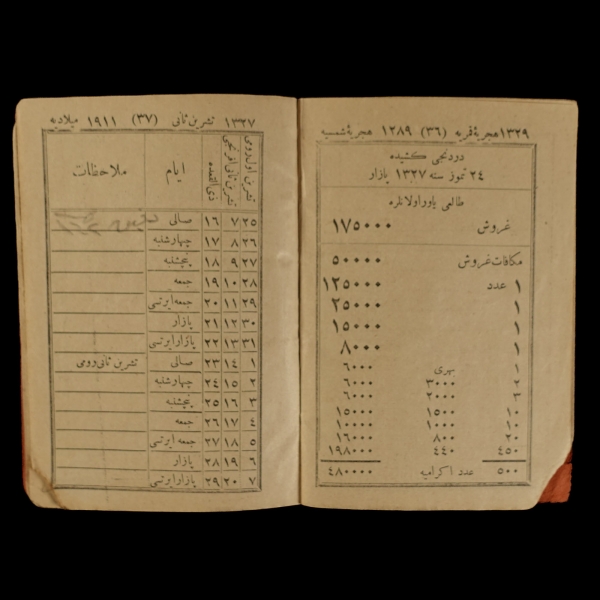 ١٣٢٩ هجریهٔ قمریه (٣٦) ١٢٨٩ هجریهٔ شمسیه
دردنجی كشیده
٢٤ تموز سنه ١٣٢٧ پازار
طالعی یاور اولانلره
غروش ١٧٥٠٠٠
مكافات غروش ٥٠٠٠٠
١ عدد ١٢٥٠٠٠
١ ٢٥٠٠٠
١ ١٥٠٠٠
١ ٨٠٠٠
١ بهری ٦٠٠٠
٢ ٣٠٠٠ ٦٠٠٠
٣ ٢٠٠٠ ٦٠٠٠
١٠ ١٥٠٠ ١٥٠٠٠
١٠ ١٠٠٠ ١٠٠٠٠
٢٠ ٨٠٠ ١٦٠٠٠
٤٥٠ ٤٤٠ ١٩٨٠٠٠
٥٠٠ عدد اكرامیه ٤٨٠٠٠٠
١٣٢٧ تشرین ثانی (٣٧) ١٩١١ میلادیه
تشرین اول رومی تشرین ثانی افرنجی ذی القعده ایام ملاحظات
٢٥ ٧ ١٦ صالی
٢٦ ٨ ١٧ چهارشنبه
٢٧ ٩ ١٨ پنجشنبه
٢٨ ١٠ ١٩ جمعه
٢٩ ١١ ٢٠ جمعه ایرتسی
٣٠ ١٢ ٢١ پازار
٣١ ١٣ ٢٢ پازار ایرتسی
١ ١٤ ٢٣ صالی تشرین ثانی رومی
٢ ١٥ ٢٤ چهارشنبه
٣ ١٦ ٢٥ پنجشنبه
٤ ١٧ ٢٦ جمعه
٥ ١٨ ٢٧ جمعه ایرتسی
٦ ١٩ ٢٨ پازار
٧ ٢٠ ٢٩ پازار ایرتسی